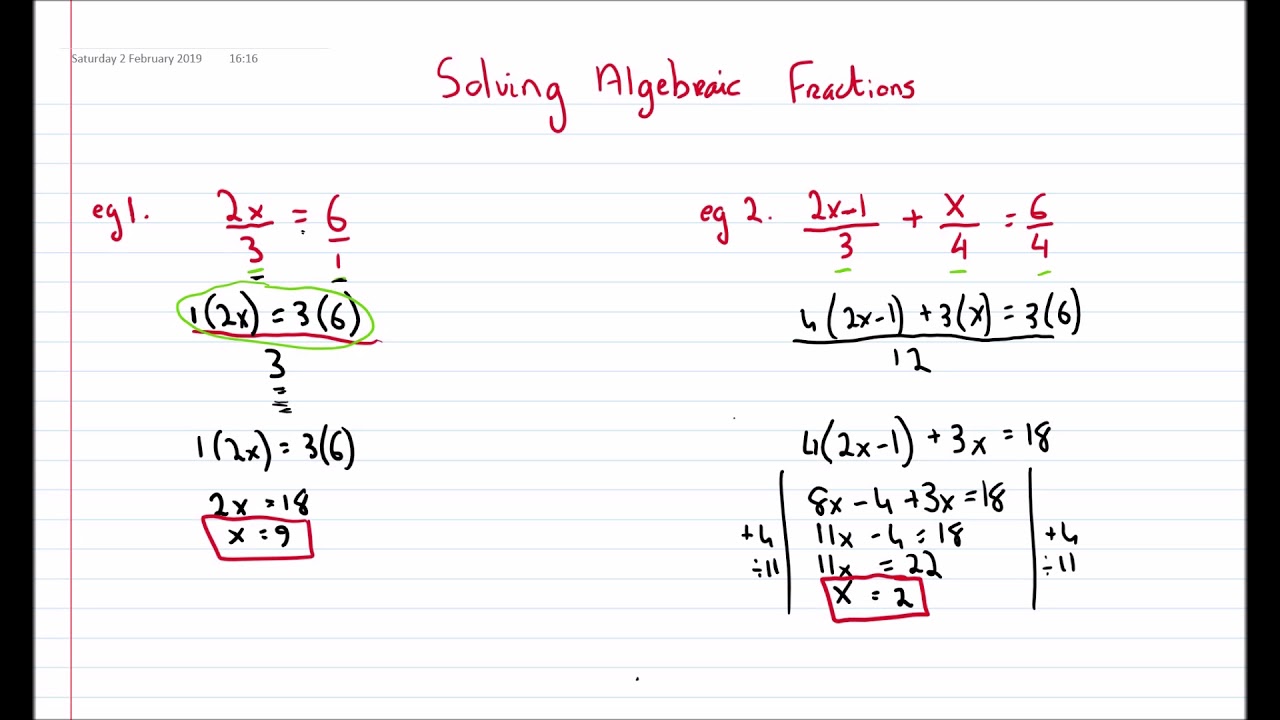 Saturday 2 February 2019 16:16
Solving Algebraic Fractions
eg 1. 2x/3 = 6/1
1(2x) = 3(6)
3
1(2x) = 3(6)
2x = 18
x = 9
eg 2. 2x-1/3 + x/4 = 6/4
4(2x-1) + 3(x) = 3(6)
12
4(2x-1) + 3x = 18
8x - 4 + 3x = 18
+4 11x - 4 = 18 +4
÷11 11x = 22 ÷11
x = 2